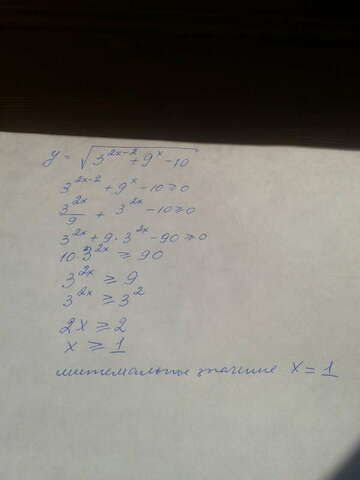 y = √(3^{2x-2} + 9^x - 10)
3^{2x-2} + 9^x - 10 ≥ 0
3^{2x}/9 + 3^{2x} - 10 ≥ 0
3^{2x} + 9 · 3^{2x} - 90 ≥ 0
10 · 3^{2x} ≥ 90
3^{2x} ≥ 9
3^{2x} ≥ 3^2
2x ≥ 2
x ≥ 1
значение x = 1